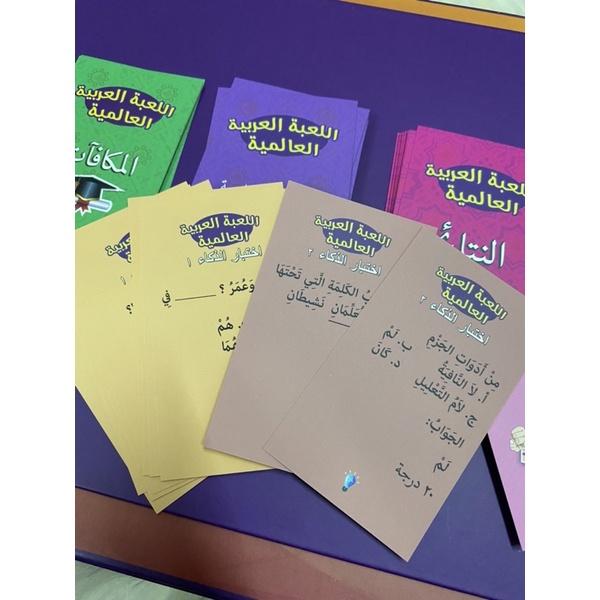 اللعبة العربية
العالمية
اللعبة العربية
العالمية
اللعبة العربية
العالمية
النتائج
اختبار الذكاء ١
وَعُمَرُ ؟ ____ فِي
هُمْ
هُمَا
اللعبة العربية
العالمية
اختبار الذكاء ٢
الْكَلِمَةِ الَّتِي تَحْتَهَا
نَشِيطَانِ
اللعبة العربية
العالمية
اختبار الذكاء ٢
مِنْ أَدَوَاتِ الْجَزْمِ
أ. لاَ النَّافِيَةُ ب. لَمْ
ج. لاَمُ التَّعْلِيلِ د. كَانَ
الجَوَابُ:
لَمْ
٢٠ درجة